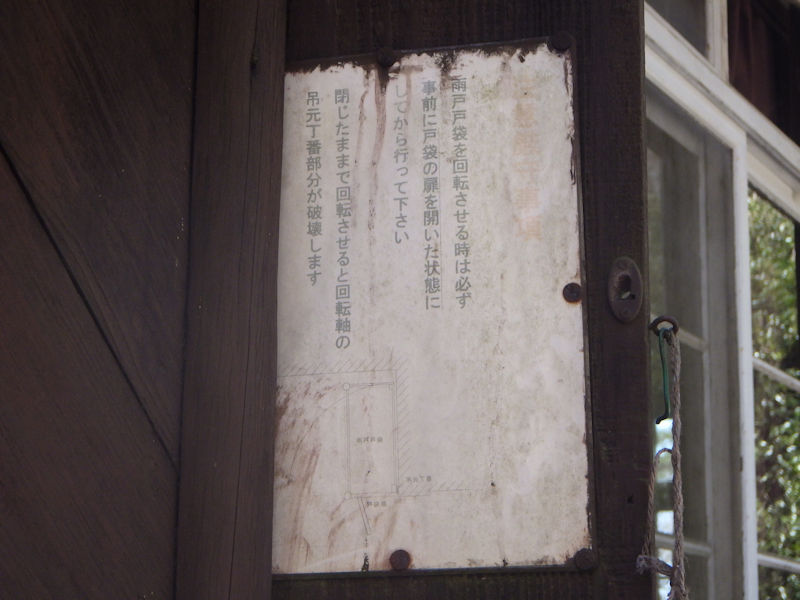 雨戸戸袋を回転させる時は必ず
事前に戸袋の扉を開いた状態に
してから行って下さい
閉じたままで回転させると回転軸の
吊元丁番部分が破壊します